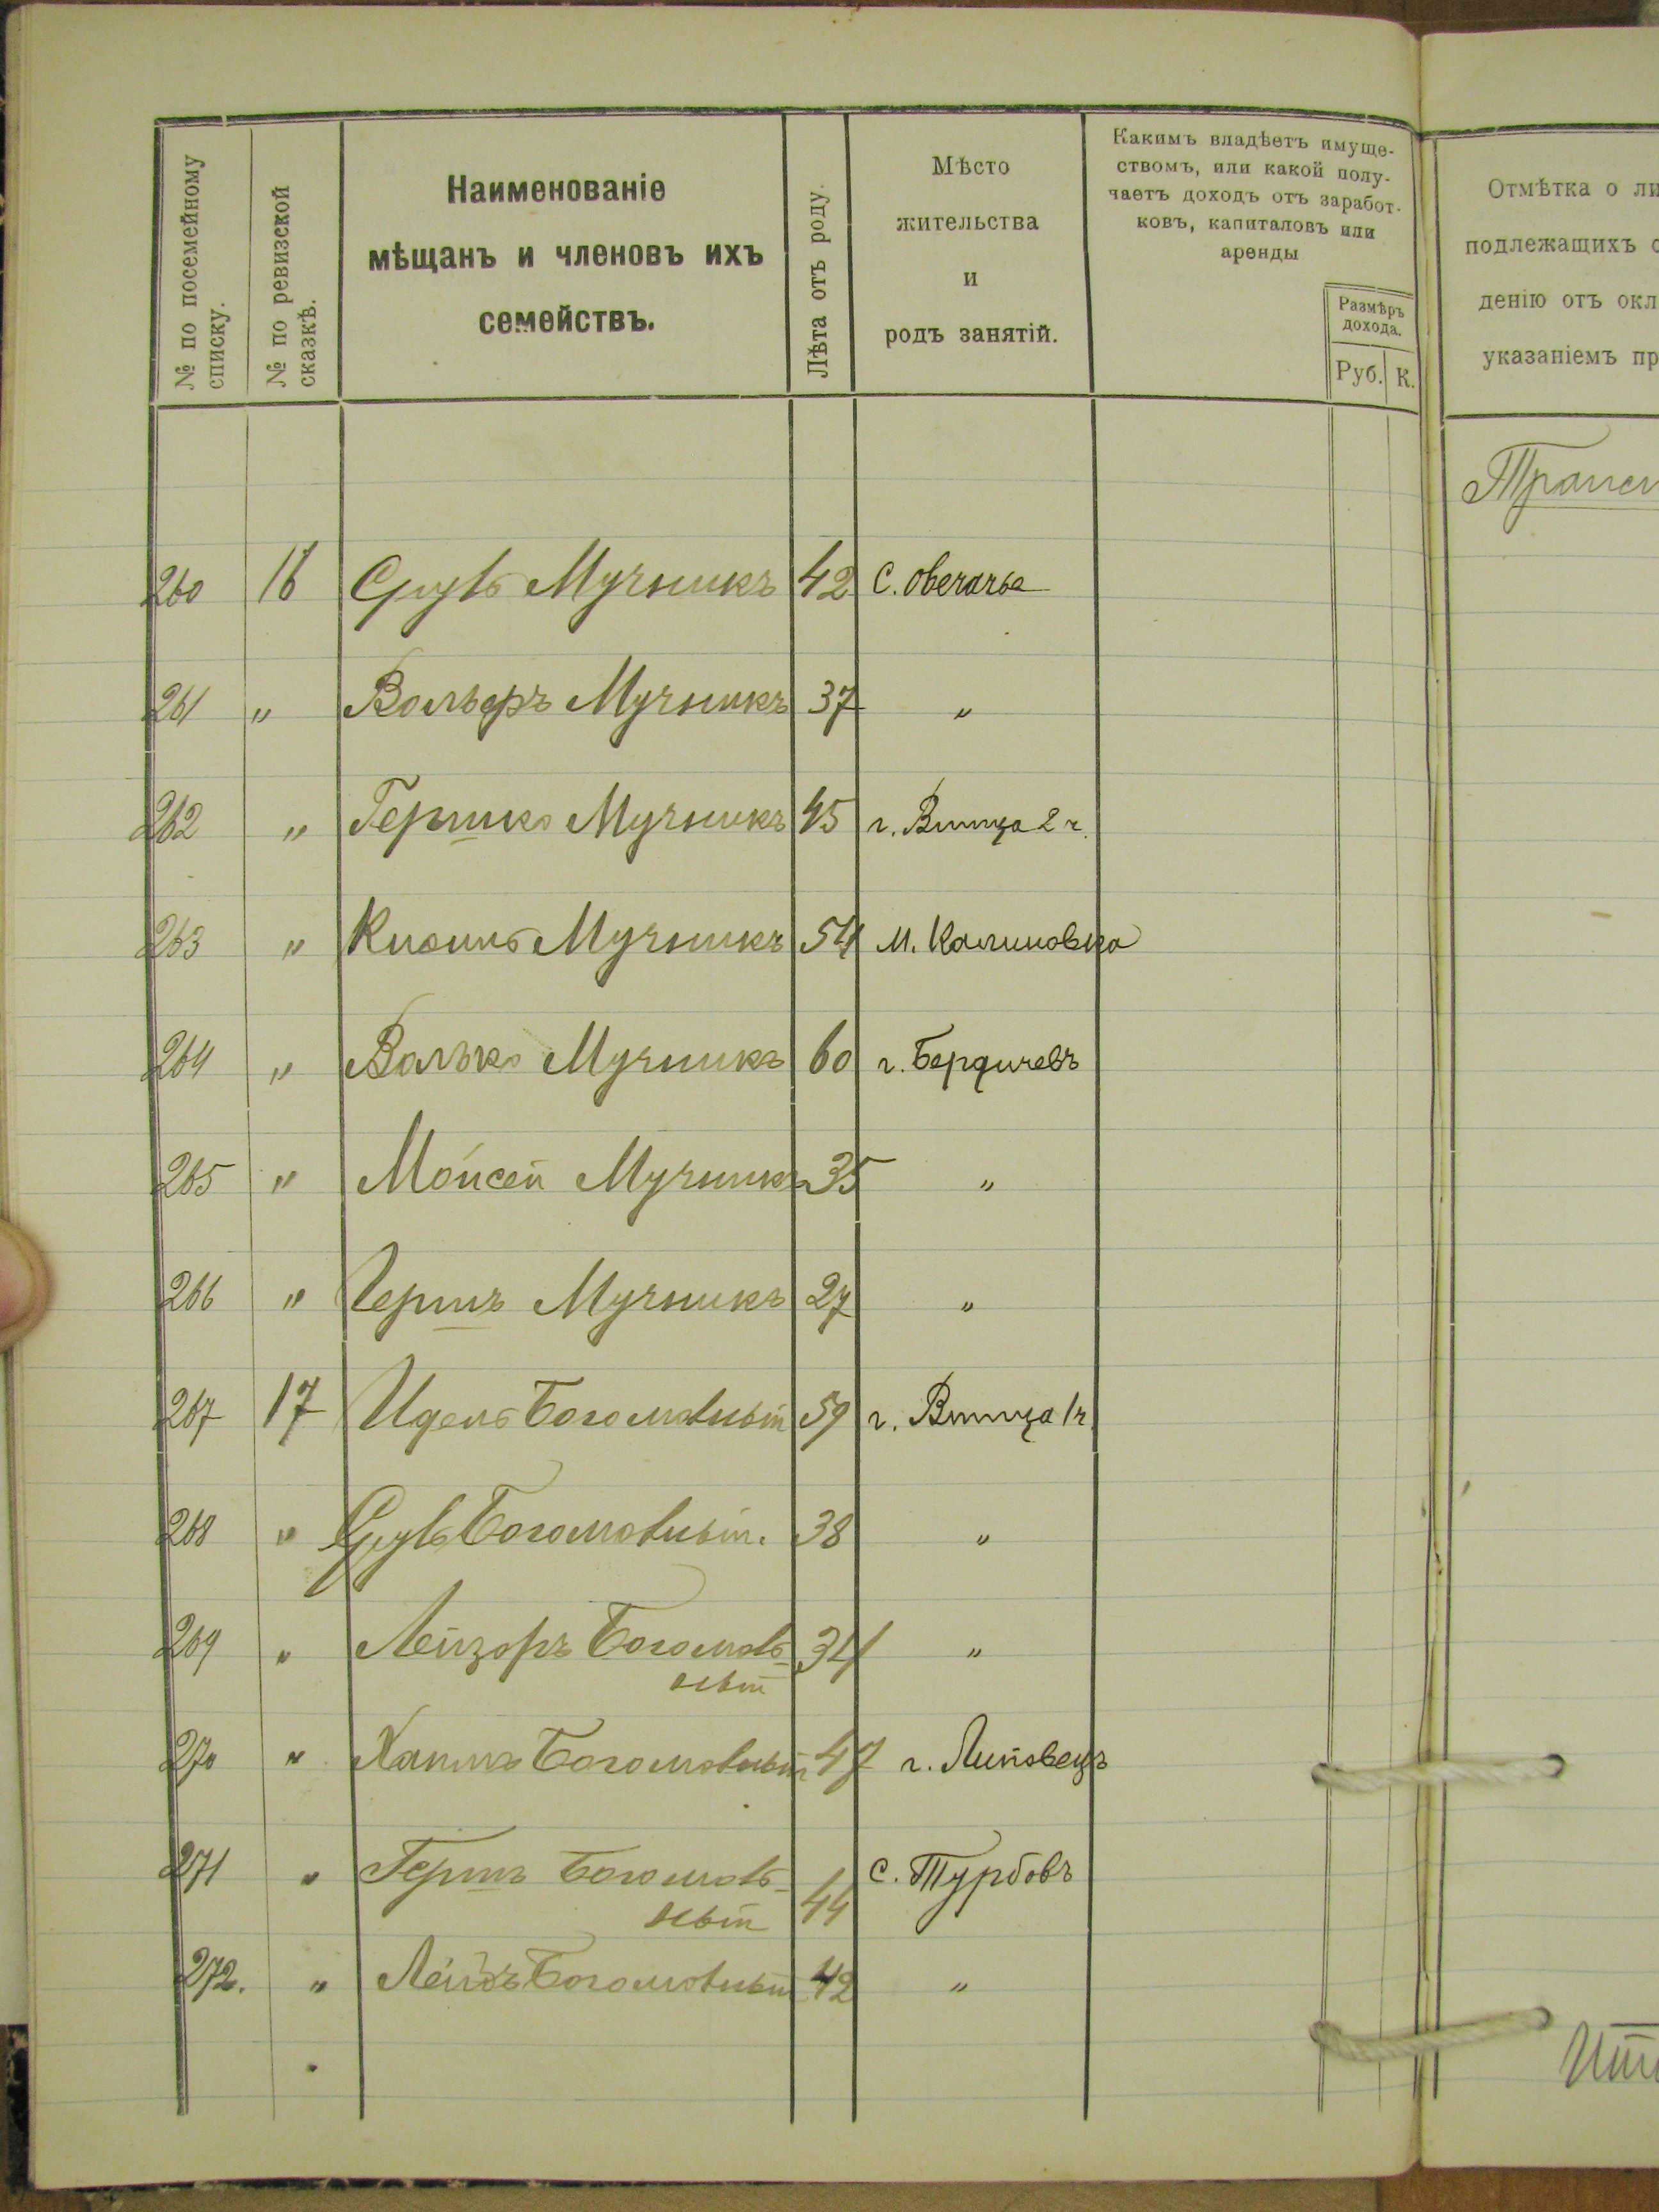 № по посемейному
списку.
№ по ревизской
сказкѣ.
Наименованіе
мѣщанъ и членовъ ихъ
семействъ.
Лѣта отъ роду.
Мѣсто
жительства
и
родъ занятій.
Какимъ владѣетъ имуще-
ствомъ, или какой полу-
чаетъ доходъ отъ заработ-
ковъ, капиталовъ или
аренды
Размѣръ
дохода.
Руб. К.
Отмѣтка о ли
подлежащихъ о
денію отъ окл
указаніемъ пр
260 16 Сруль Мучникъ 42 с. Овечачье
261 " Вольфъ Мучникъ 37 "
262 " Гершко Мучникъ 45 г. Винница 2 ч.
263 " Кисиль Мучникъ 54 м. Калиновка
264 " Волько Мучникъ 60 г. Бердичевъ
265 " Мойсей Мучникъ 35 "
266 " Гершъ Мучникъ 27 "
267 17 Идель Богомольный 59 г. Винница 1 ч.
268 " Сруль Богомольный. 38 "
269 " Лейзоръ Богомоль- 34 "
ный
270 " Хаимъ Богомольный 47 г. Липовецъ
271 " Гершъ Богомоль- 44 с. Турбовъ
ный
272. " Богомольный 42 "